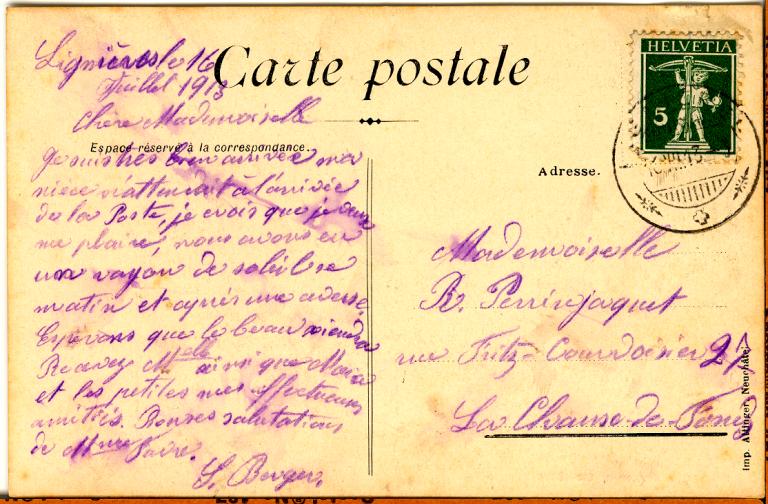 Lignières le 16
Juillet 1913
Carte postale
Chère Mademoiselle
Espace réservé à la correspondance.
Je suis très bien arrivée ma
nièce m'attendait à l'arrivée
de la Poste, je crois que je veux
me plaire, nous avons eu
un rayon de soleil se
matin et après une averse.
Espérons que le beau viendra
Recevez Melle ainsi que Marie
et les petites mes affectueuses
amitiés. Bonnes salutations
de Mme Favre.
S. Berger.
HELVETIA
5
Adresse.
Mademoiselle
R. Perrinjaquet
rue Fritz-Courvoisier 21
La Chaux-de-Fonds
Imp. Attinger, Neuchâtel.